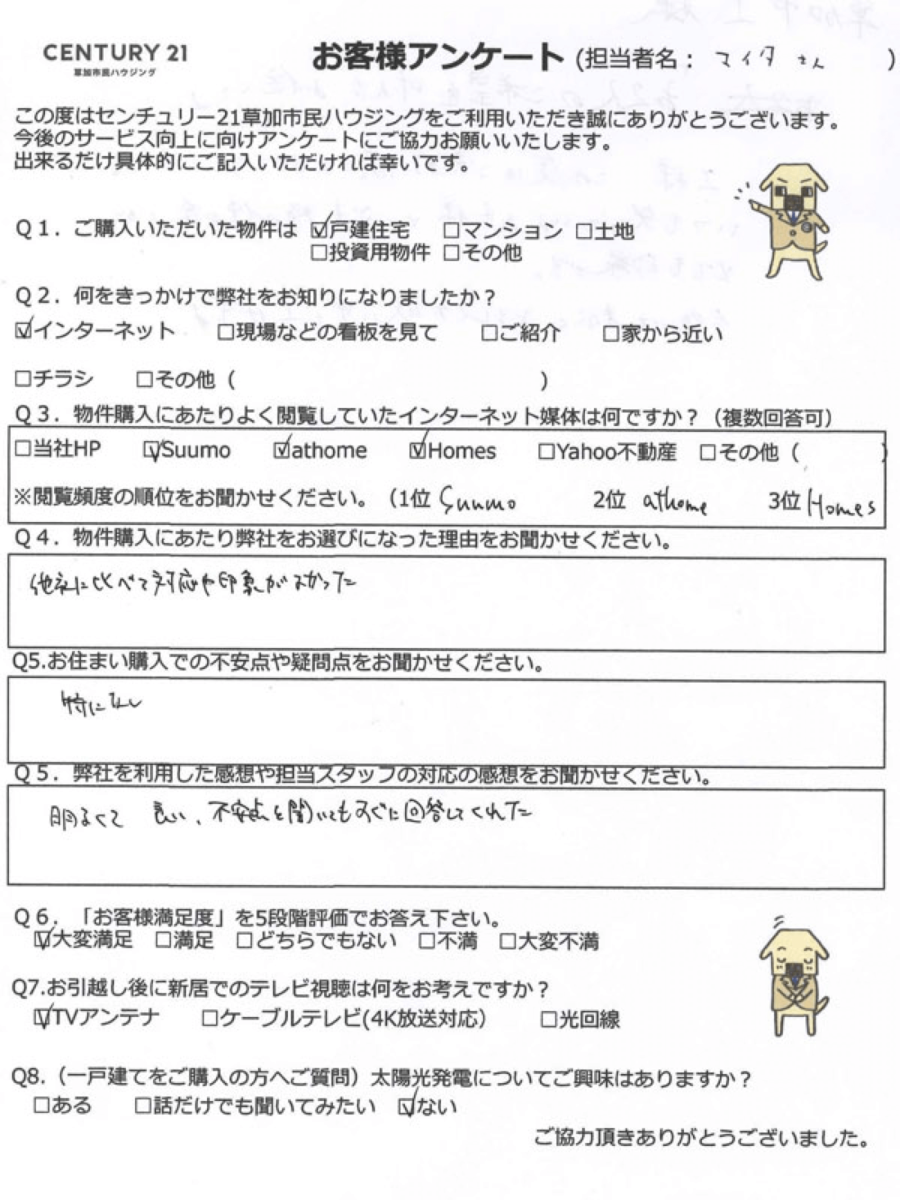 CENTURY 21
草加市民ハウジング
お客様アンケート (担当者名： マイタ さん )
この度はセンチュリー21草加市民ハウジングをご利用いただき誠にありがとうございます。
今後のサービス向上に向けアンケートにご協力お願いいたします。
出来るだけ具体的にご記入いただければ幸いです。
Ｑ１．ご購入いただいた物件は ☑戸建住宅 □マンション □土地
□投資用物件 □その他
Ｑ２．何をきっかけで弊社をお知りになりましたか？
☑インターネット □現場などの看板を見て □ご紹介 □家から近い
□チラシ □その他（ ）
Ｑ３．物件購入にあたりよく閲覧していたインターネット媒体は何ですか？（複数回答可）
□当社HP ☑Suumo ☑athome ☑Homes □Yahoo不動産 □その他（ ）
※閲覧頻度の順位をお聞かせください。（1位 Suumo 2位 athome 3位 Homes
Ｑ４．物件購入にあたり弊社をお選びになった理由をお聞かせください。
他社に比べて対応や印象がよかった
Q5.お住まい購入での不安点や疑問点をお聞かせください。
特になし
Ｑ５．弊社を利用した感想や担当スタッフの対応の感想をお聞かせください。
明るくて 良い、不安点を聞いてもすぐに回答してくれた
Ｑ６．「お客様満足度」を5段階評価でお答え下さい。
☑大変満足 □満足 □どちらでもない □不満 □大変不満
Q7.お引越し後に新居でのテレビ視聴は何をお考えですか？
☑TVアンテナ □ケーブルテレビ(4K放送対応） □光回線
Q8.（一戸建てをご購入の方へご質問）太陽光発電についてご興味はありますか？
□ある □話だけでも聞いてみたい ☑ない
ご協力頂きありがとうございました。